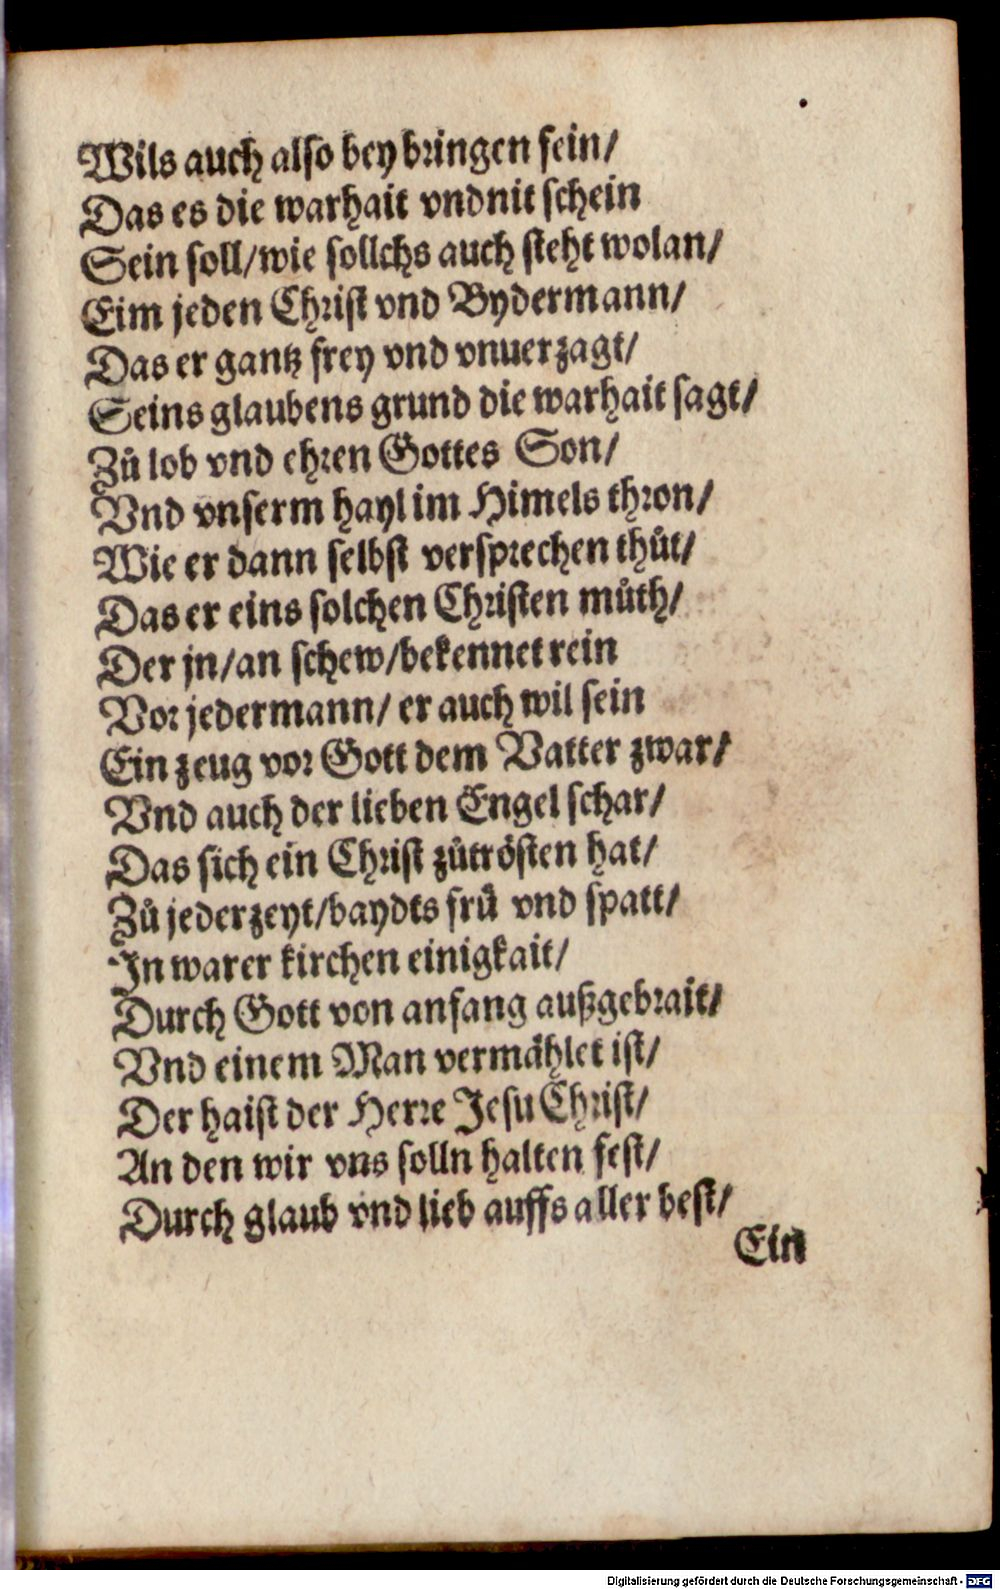 Wils auch also bey bringen sein/
Das es die warhait vndnit schein
Sein soll/wie sollchs auch steht wolan/
Eim jeden Christ vnd Bydermann/
Das er gantz frey vnd vnuerzagt/
Seins glaubens grund die warhait sagt/
Zů lob vnd ehren Gottes Son/
Vnd vnserm hayl im Himels thron/
Wie er dann selbst versprechen thůt/
Das er eins solchen Christen můth/
Der jn/an schew/bekennet rein
Vor jedermann/ er auch wil sein
Ein zeug vor Gott dem Vatter zwar/
Vnd auch der lieben Engel schar/
Das sich ein Christ zůtrösten hat/
Zů jederzeyt/baydts frü vnd spatt/
In warer kirchen einigkait/
Durch Gott von anfang außgebrait/
Vnd einem Man vermählet ist/
Der haist der Herre Jesu Christ/
An den wir vns solln halten fest/
Durch glaub vnd lieb auffs aller best/
Ein
Digitalisierung gefördert durch die Deutsche Forschungsgemeinschaft - DFG